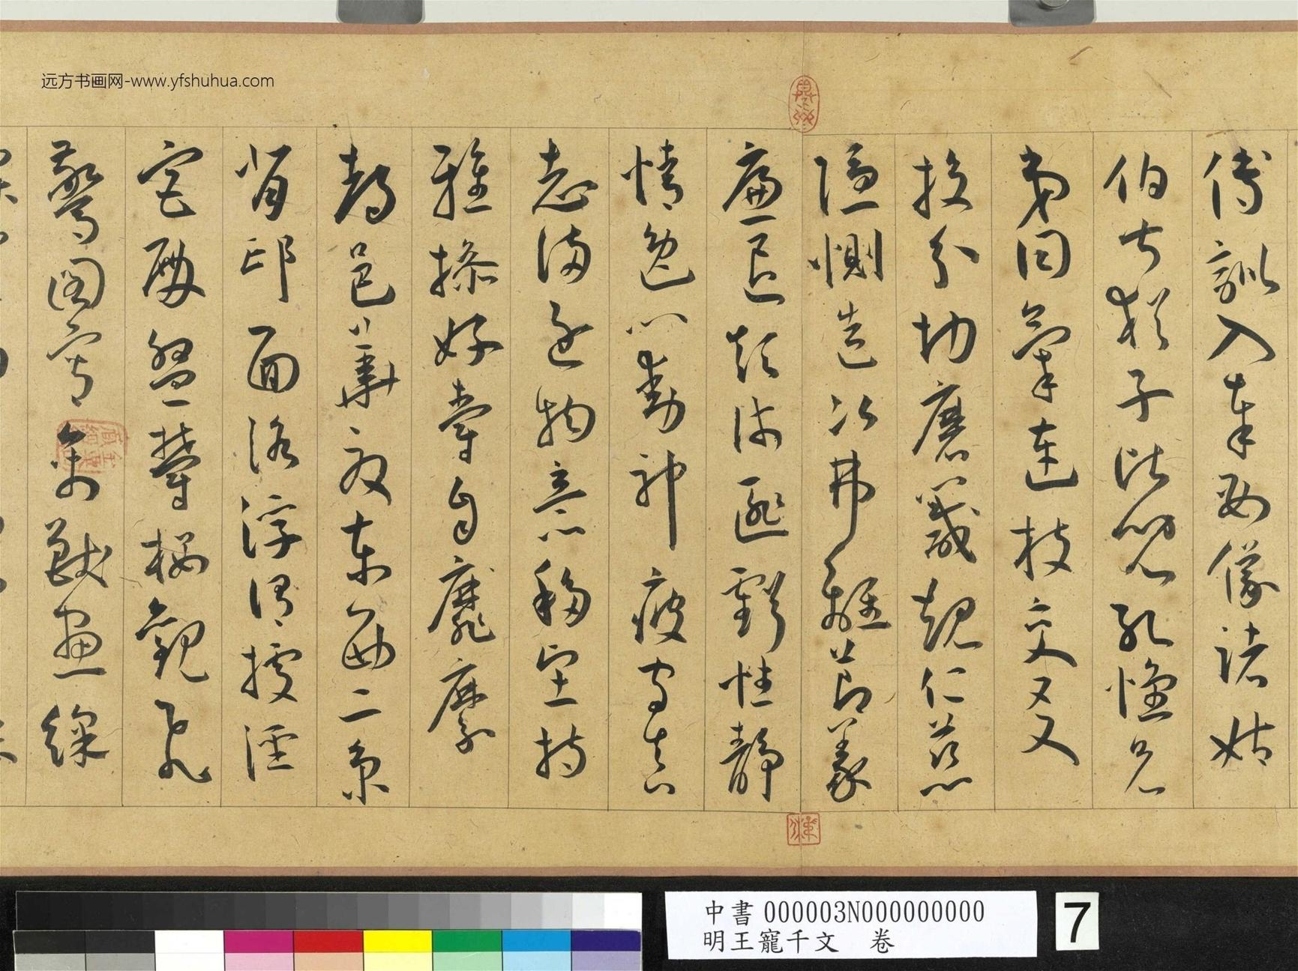 远方书画网-www.yfshuhua.com
傅訓入奉母儀諸姑
伯叔猶子比兒孔懷兄
弟同氣連枝交友
投分切磨箴規仁慈
隱惻造次弗離節義
廉退顛沛匪虧性靜
情逸心動神疲守真
志滿逐物意移堅持
雅操好爵自靡縻
都邑華夏東西二京
背邙面洛浮渭據涇
宮殿盤鬱樓觀飛
驚圖寫禽獸畫綵
中書 000003N000000000
明王寵千文 卷
7